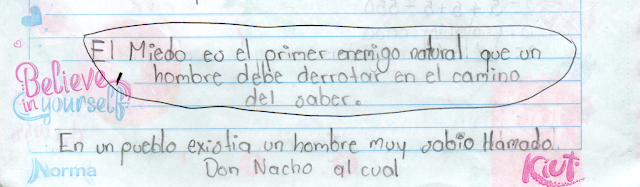 El Miedo es el primer enemigo natural que un
hombre debe derrotar en el camino
del saber.
Believe
in yourself
En un pueblo existia un hombre muy sabio llamado
Don Nacho al cual
Norma
Kiut